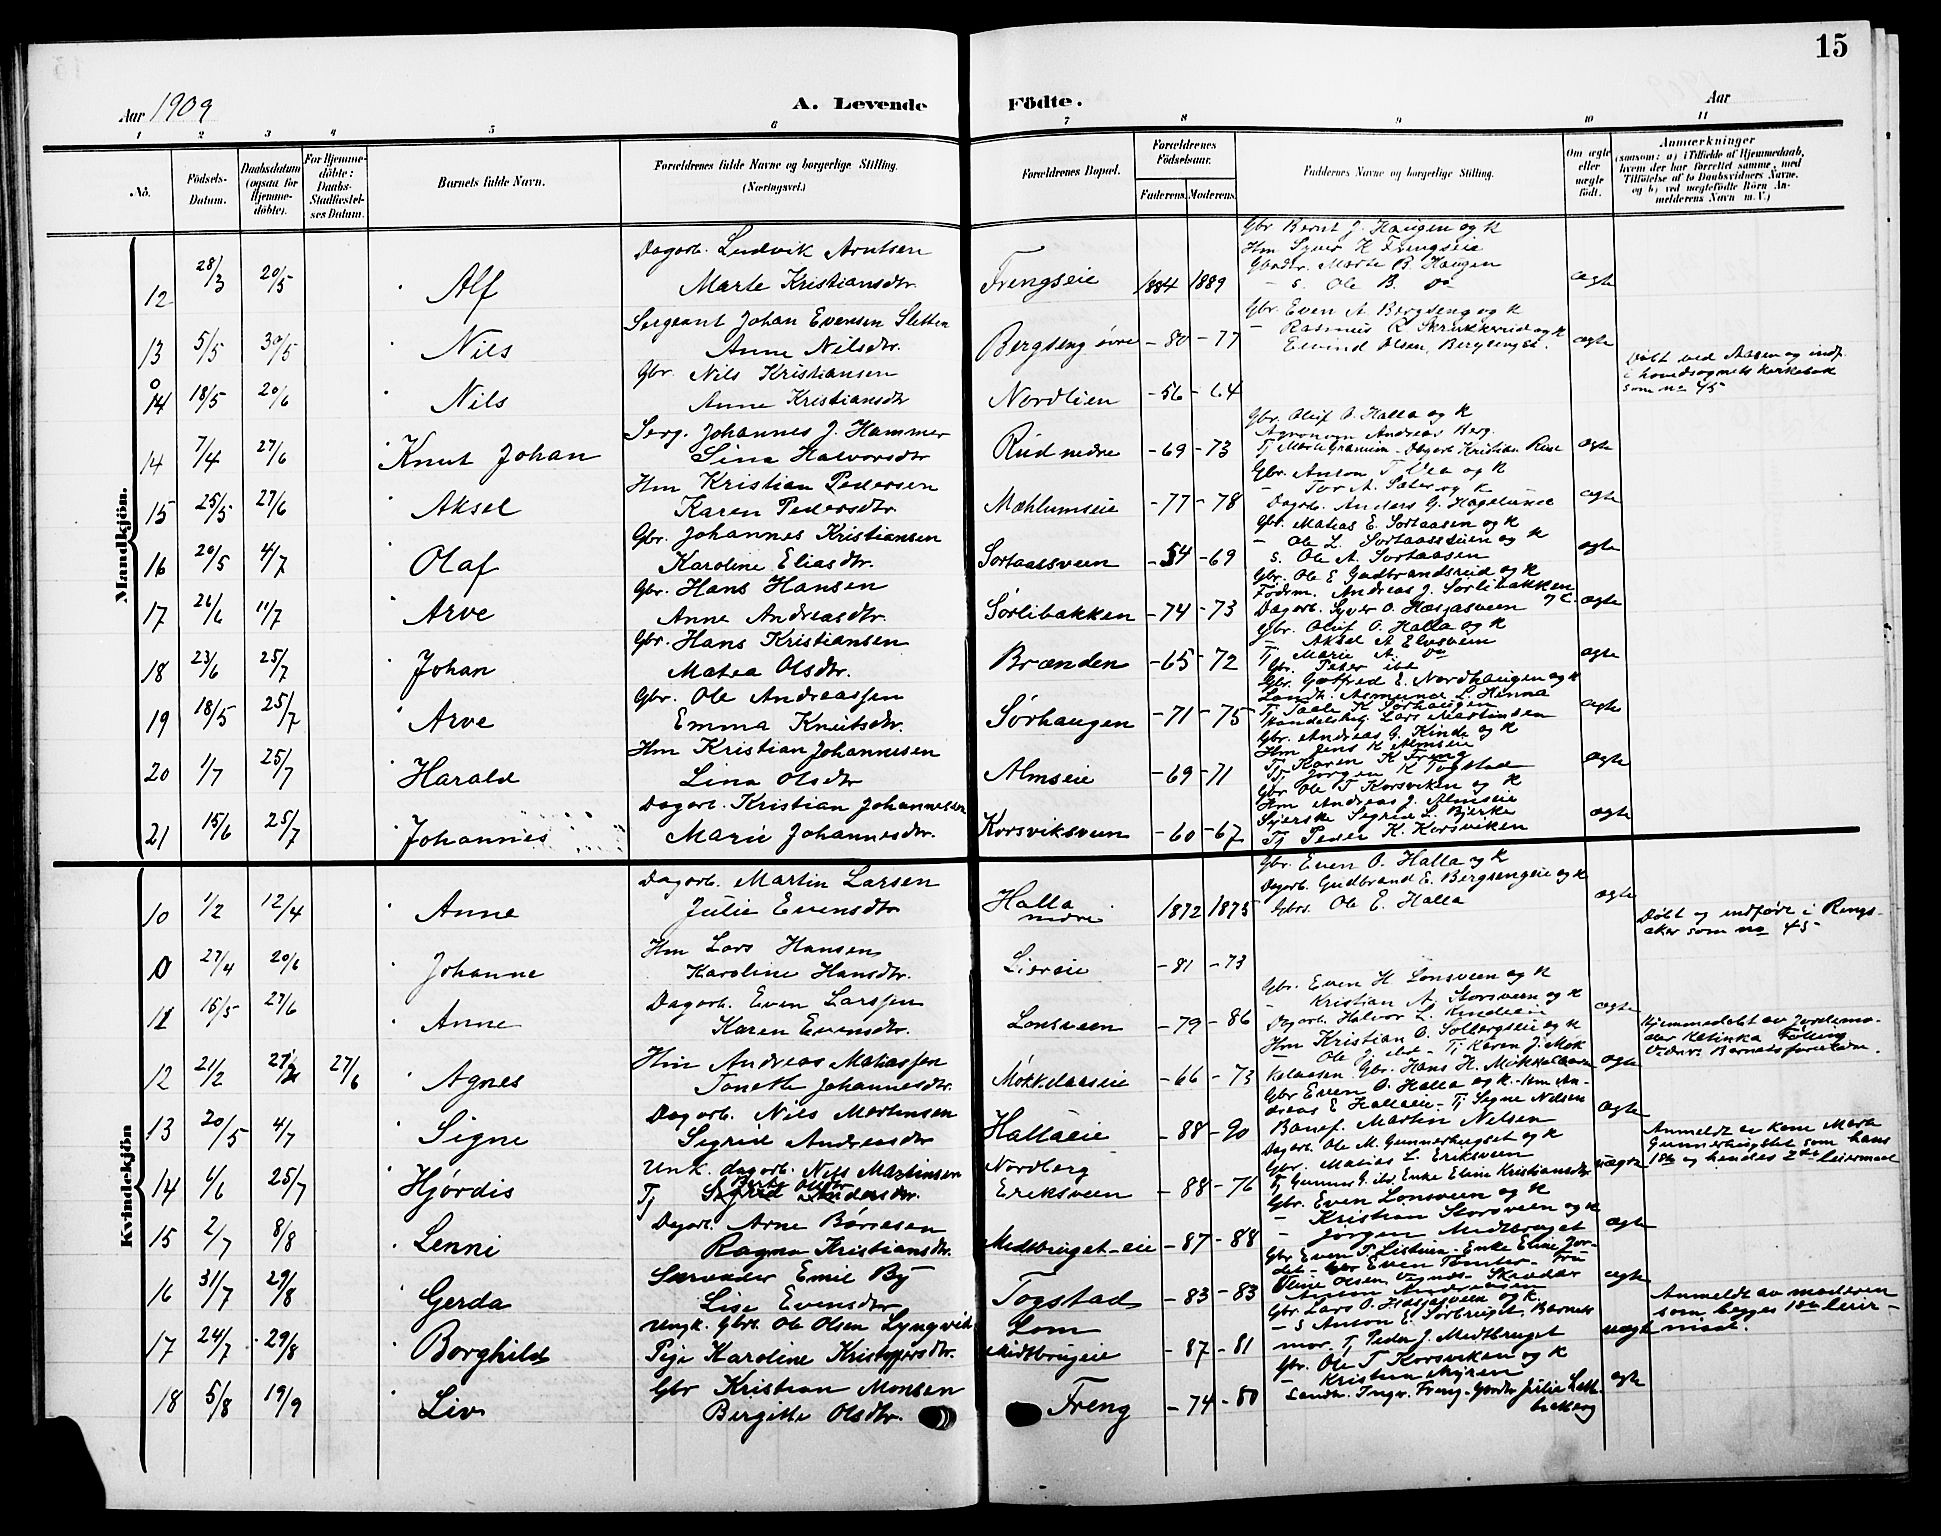 15
Aar 1909
A. Levende Födte.
Aar
1 2 3 4 5 6 7 8 9 10 11
No.
Födsels-Datum.
Daabsdatum (ogsaa for Hjemmedöbte).
For Hjemmedöbte: Daabs-Stadfæstelses Datum.
Barnets fulde Navn.
Forældrenes fulde Navne og borgerlige Stilling. (Næringsvei.)
Forældrenes Bopæl.
Forældrenes Födselsaar.
Faderens. Moderens.
Faddernes Navne og borgerlige Stilling.
Om ægte eller uægte født.
Anmærkninger
(saasom: a) i Tilfælde af Hjemmedaab, hvem der har forrettet samme, med Tilföielse af to Daabsvidners Navne. og b) ved uægtefödte Börn Anmelderens Navn m. V.)
Mandkjön.
12 28/3 20/5 Alf
Dagarb. Ludvik Arntsen
Marte Kristiansdtr
Frengseie 1884 1889
Gbr Bernt J. Haugen og k
Hm Syver K Frengseie
Gbrdtr. Marte B. Haugen
- s. Ole B. do
ægte
13 5/5 30/5 Nils
Sergeant Johan Evensen Sletten
Anne Nilsdtr.
Bergseng övre -80 -77
Gbr. Even A. Bergseng og k
- Rasmus R Skrukkerud og k
Eivind Olsen, Bergsenget.
ægte
14 18/5 20/6 Nils
Gbr. Nils Kristiansen
Anne Kristiansdtr
Nordlien -56 -64
Döbt ved Aasen og indf.
i hovedsognets kirkebok
som no 45
14 7/4 27/6 Knut Johan
Serg. Johannes J. Hammer
Lina Halvorsdtr
Rud nedre -69 -73
Gbr. Oluf O. Halla og k
Agronom Andreas Berg.
Tj Marte Granum - Dagarb Kristian Rise
ægte
15 25/5 27/6 Aksel
Hm Kristian Pedersen
Karen Pedersdtr.
Mæhlumseie -77 -78
Gbr. Anton T. Vea og k
- Tor A. Sæter og k
Dagarb. Anders G. Hagelund
ægte
16 20/5 4/7 Olaf
Gbr. Johannes Kristiansen
Karoline Eliasdtr.
Sortaasveen -54 -69
Gbr. Matias E. Sortaasen og k
- Ole L. Sortaasveen og k
s. Ole A. Sortaasen
ægte
17 26/6 11/7 Arve
Gbr. Hans Hansen
Anne Andreasdtr.
Sörlibakken -74 -73
Gbr. Ole E Gudbrandsreid og k
Födrm. Andreas J. Sörlibakken og k.
Dagarb. Syver O. Hæsjasveen
ægte
18 23/6 25/7 Johan
Gbr. Hans Kristiansen
Matea Olsdtr.
Brænden -65 -72
Gbr. Oluf O. Halla og k
- Aksel A. Elvsveen
Tj Marie A. do
Gbr. Peter ibd
ægte
19 18/5 25/7 Arve
Gbr. Ole Andreassen
Emma Knutsdtr.
Sörhaugen -71 -75
Gbr. Gotfred E. Nordhaugen og k
Landh. Asmund L. Hinna
Tj Taale K Sörhaugen
Handelsbtj. Lars Martinsen
ægte
20 1/7 25/7 Harald
Hm Kristian Johannesen
Lina Olsdtr
Almseie -69 -71
Gbr. Andreas G. Kinde og k
Hm Jens K Almseie
Tj Karen K Freng
Tj Jörgen K Togstad
ægte
21 15/6 25/7 Johannes
Dagarb. Kristian Johannesen
Marie Johannesdtr.
Korsviksveen -60 -67
Gbr Ole T Korsviken og k
Hm Andreas J. Almseie
Syerske Sigrid L. Bjerke
Tj Peder K. Korsviken
ægte
Kvindekjön
10 1/2 12/4 Anne
Dagarb. Martin Larsen
Julie Evensdtr
Halla nedre 1872 1875
Gbr. Even O. Halla og k
Dagarb. Gudbrand E. Bergsengeie og k
Gbrs. Ole E. Halla
ægte
0 27/4 20/6 Johanne
Hm Lars Hansen
Karoline Hansdtr.
Liereie -81 -73
Döbt og indfört i Rings-
aker som no 45-
11 15/5 27/6 Anne
Dagarb. Even Larssen
Karen Evensdtr.
Lonsveen -79 -86
Gbr. Even H. Lonsveen og k
- Kristian A. Storsveen og k
Dagarb. Halvor L. Kindlien
ægte
12 21/2 27/6 Agnes
Hm Andreas Matiassen
Tonette Johannesdtr.
Mökkelaaseie -66 -73
Hm Kristian O. Solbergseie og k
- Ole J. ibd - Tj Karen J. Mök
kelaasen Gbr. Hans H. Mökkelaasen
ægte
Hjemmedöbt av Jordemo-
der Katinka Fölling
Vidner: Barnets forældre.
13 20/5 4/7 Signe
Dagarb. Nils Martinsen
Sigrid Andreasdtr
Hallaeie -88 -90
Gbr Even O. Halla og k. Hm An-
dreas E Hallaeie. Tj Signe Nilsen
Banef. Martin Nilsen
ægte
14 6/6 25/7 Hjördis
Unk. dagarb. Nils Martinsen
Tj Berte Olsdtr
Sigrid Andersdtr.
Nordberg
Eriksveen -88 -76
Dagarb. Ole M. Gunnerbergset og k
Gbr. Matias L. Eriksveen
Tj Gunnus G. ibd. Enke Eline Kristiansdtr
uægte
Anmeldt av kone Marte
Gunnerbergset som hans
1ste og hendes 2det leiermaal
15 2/7 8/8 Lenni
Dagarb. Arne Börresen
Ragna Kristiansdtr.
Midtbruget-eie -87 -88
Gbr. Even Lonsveen og k
- Kristian Storsveen og k
- Jörgen Midtbruget
ægte
16 31/7 29/8 Gerda
Emil By
Lise Evensdtr
Togstad -83 -83
Gbr Even T. Listuen. Enke Eline Jor-
det - Gbr Even Tömter.
ægte
17 24/7 29/8 Borghild
Ungk. Gbrs. Ole Olsen Lyngved
Pige Karoline Kristoffersdtr.
Lom
Midtbrugeie -87 -81
Gbr. Lars O. Hæsjasveen og k.
- s Anton E. Sörbruget. Barnets
mor. Tj Peder J. Midtbruget
uægte
Anmeldt av moderen
som begges 1ste leier-
maal.
18 5/8 19/9 Liv
Gbr Kristian Monsen
Bergitte Olsdtr.
Freng -74 -80
Gbr. Ole T Korsviken og k
- Kristian Myren
Landbr. Ingv. Freng. Gbrdtr Julie
ægte